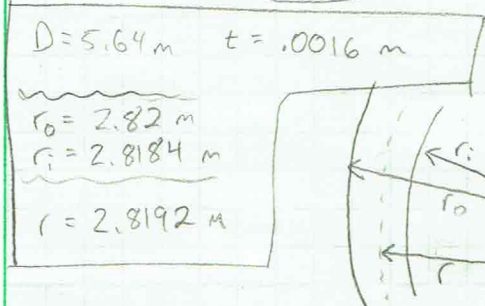 D = 5.64 m t = .0016 m
ro = 2.82 m
ri = 2.8184 m
r = 2.8192 m
ri
ro
r